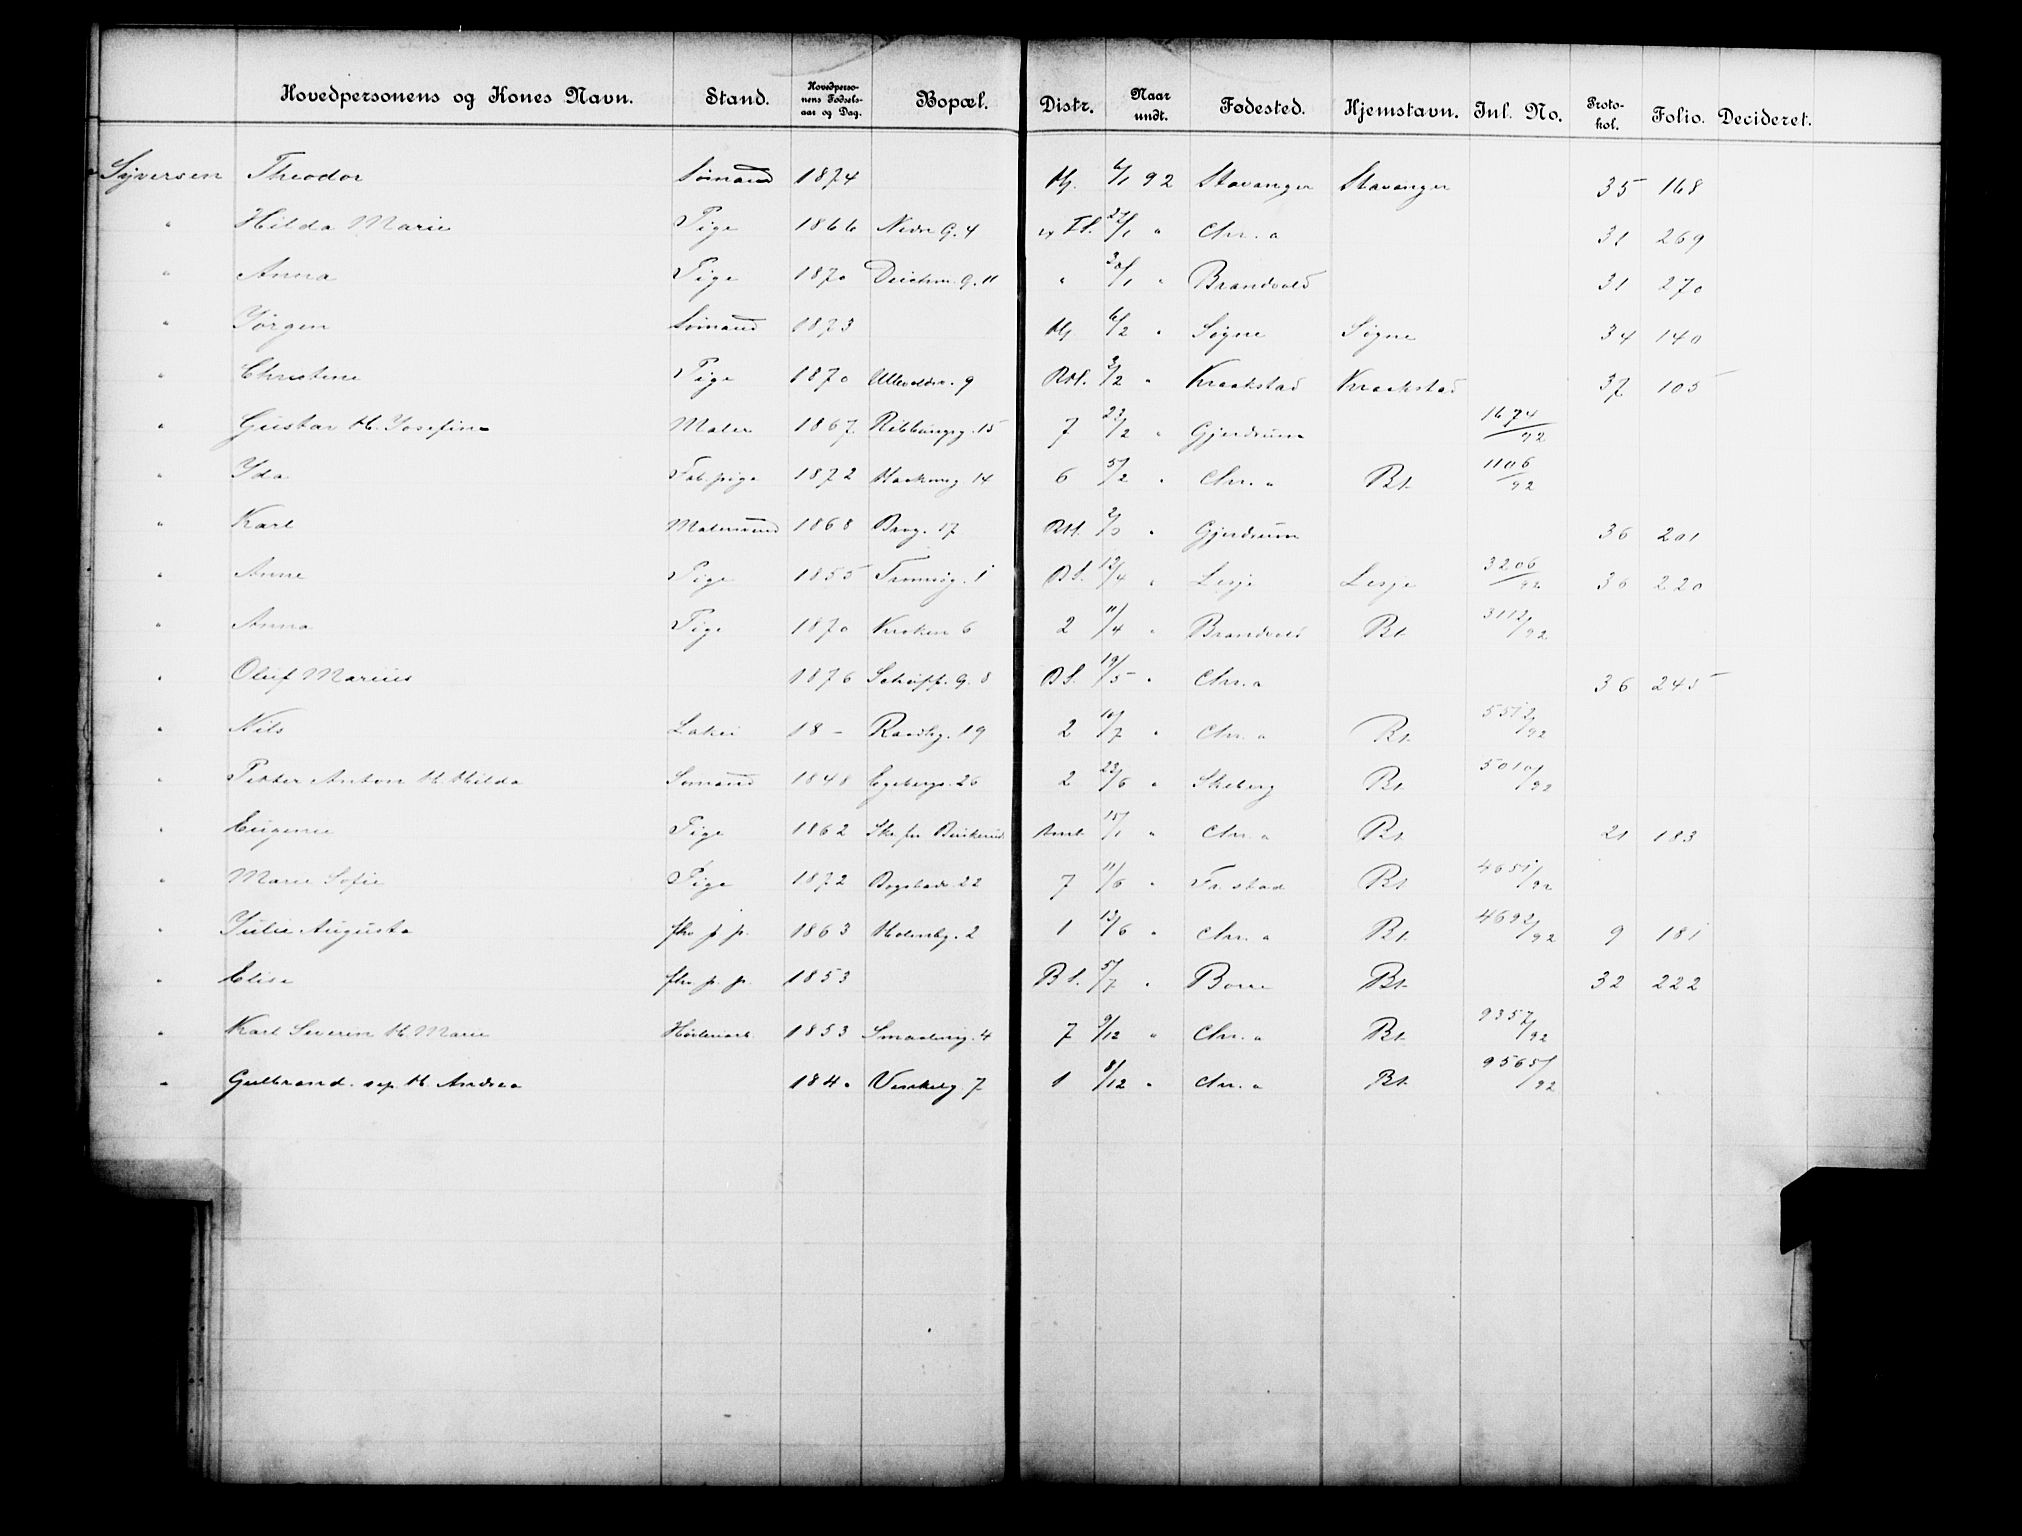 Hovedpersonens og Kones Navn. Stand. Hovedpersonens Fødselsaar og Dag. Bopæl. Distr. Naar undt. Fødested. Hjemstavn. Inl. No. Protokol. Folio. Decideret.
Syversen Theodor Sømand 1874 6/1 92 Stavanger Stavanger 35 168
" Hilda Marie Pige 1866 Nedre G. 4 27/1 " Chr. a 31 269
" Anna Pige 1870 Deichm. G. 11 " 30/1 " Brandvold 31 270
" Jørgen Sømand 1873 6/2 " Søgne Søgne 34 140
" Christine Pige 1870 Ullevoldsv. 9 2/2 " Kraakstad Kraakstad 37 105
" Gustav M. Josefine Maler 1867 Ribbungsg. 15 7 22/2 " Gjerdrum 1674/92
" Ida Fab.pige 1872 14 6 5/2 " Chr. a Bt. 1106/92
" Karl Malersvend 1868 Brog. 17 " Gjerdrum 36 201
" Anne Pige 1855 Tromsøg. 1 12/4 " Lesje Lesje 3206/92 36 220
" Anna Pige 1870 Kroken 6 2 11/4 " Brandvold Bt. 3112/92
" Oluf Marius 1876 G. 8 19/5 " Chr. a 36 245
" Nils Lakei 18 – 19 2 10/7 " Chr. a Bt. 5512/92
" Petter Anton M. Hilda Sømand 1848 Egebergs. 26 2 23/6 " Skeberg Bt. 5010/92
" Eugenie Pige 1862 15/1 " Chr. a Bt. 21 183
" Marie Sofie Pige 1872 Bogstadv. 22 7 11/6 " Fr. stad Bt. 4651/92
" Julie Augusta 1863 Holmbg. 2 1 13/6 " Chr. a Bt. 4692/92 9 181
" Elise 1853 5/7 " Borre Bt. 32 222
" Karl Severin M. Marie 1853 Smaalensg. 4 7 9/12 " Chr. a Bt. 9357/92
" Gulbrand. sep. M. Andrea 1840 7 1 8/12 " Chr. a Bt. 9565/92